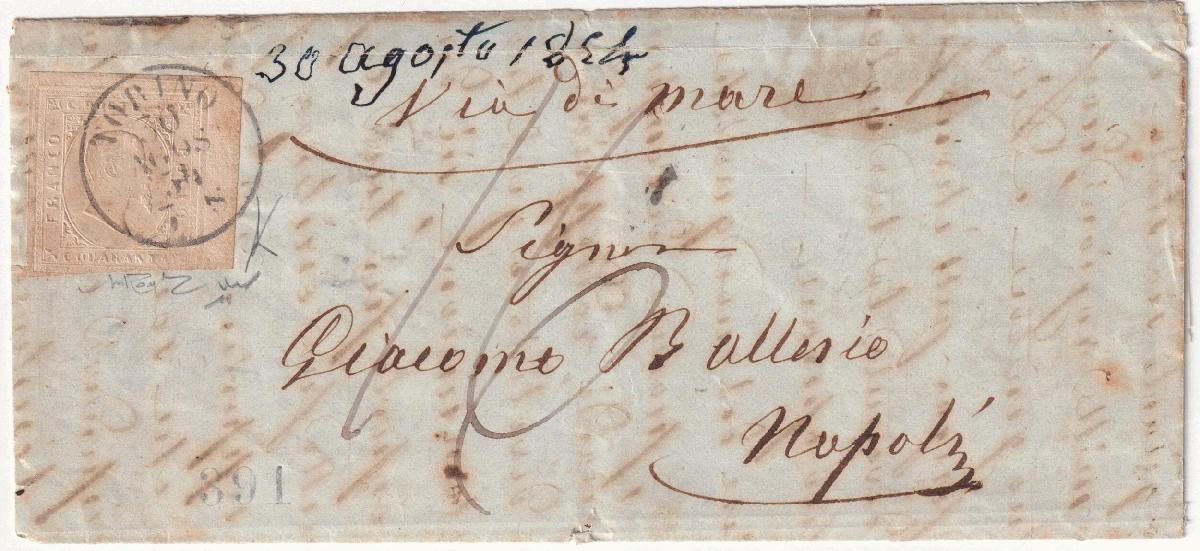 30 agosto 1854
Via di mare
TORINO
30
FRANCO
QUARANTA
Signor
Giacomo Ballesio
Napoli
391